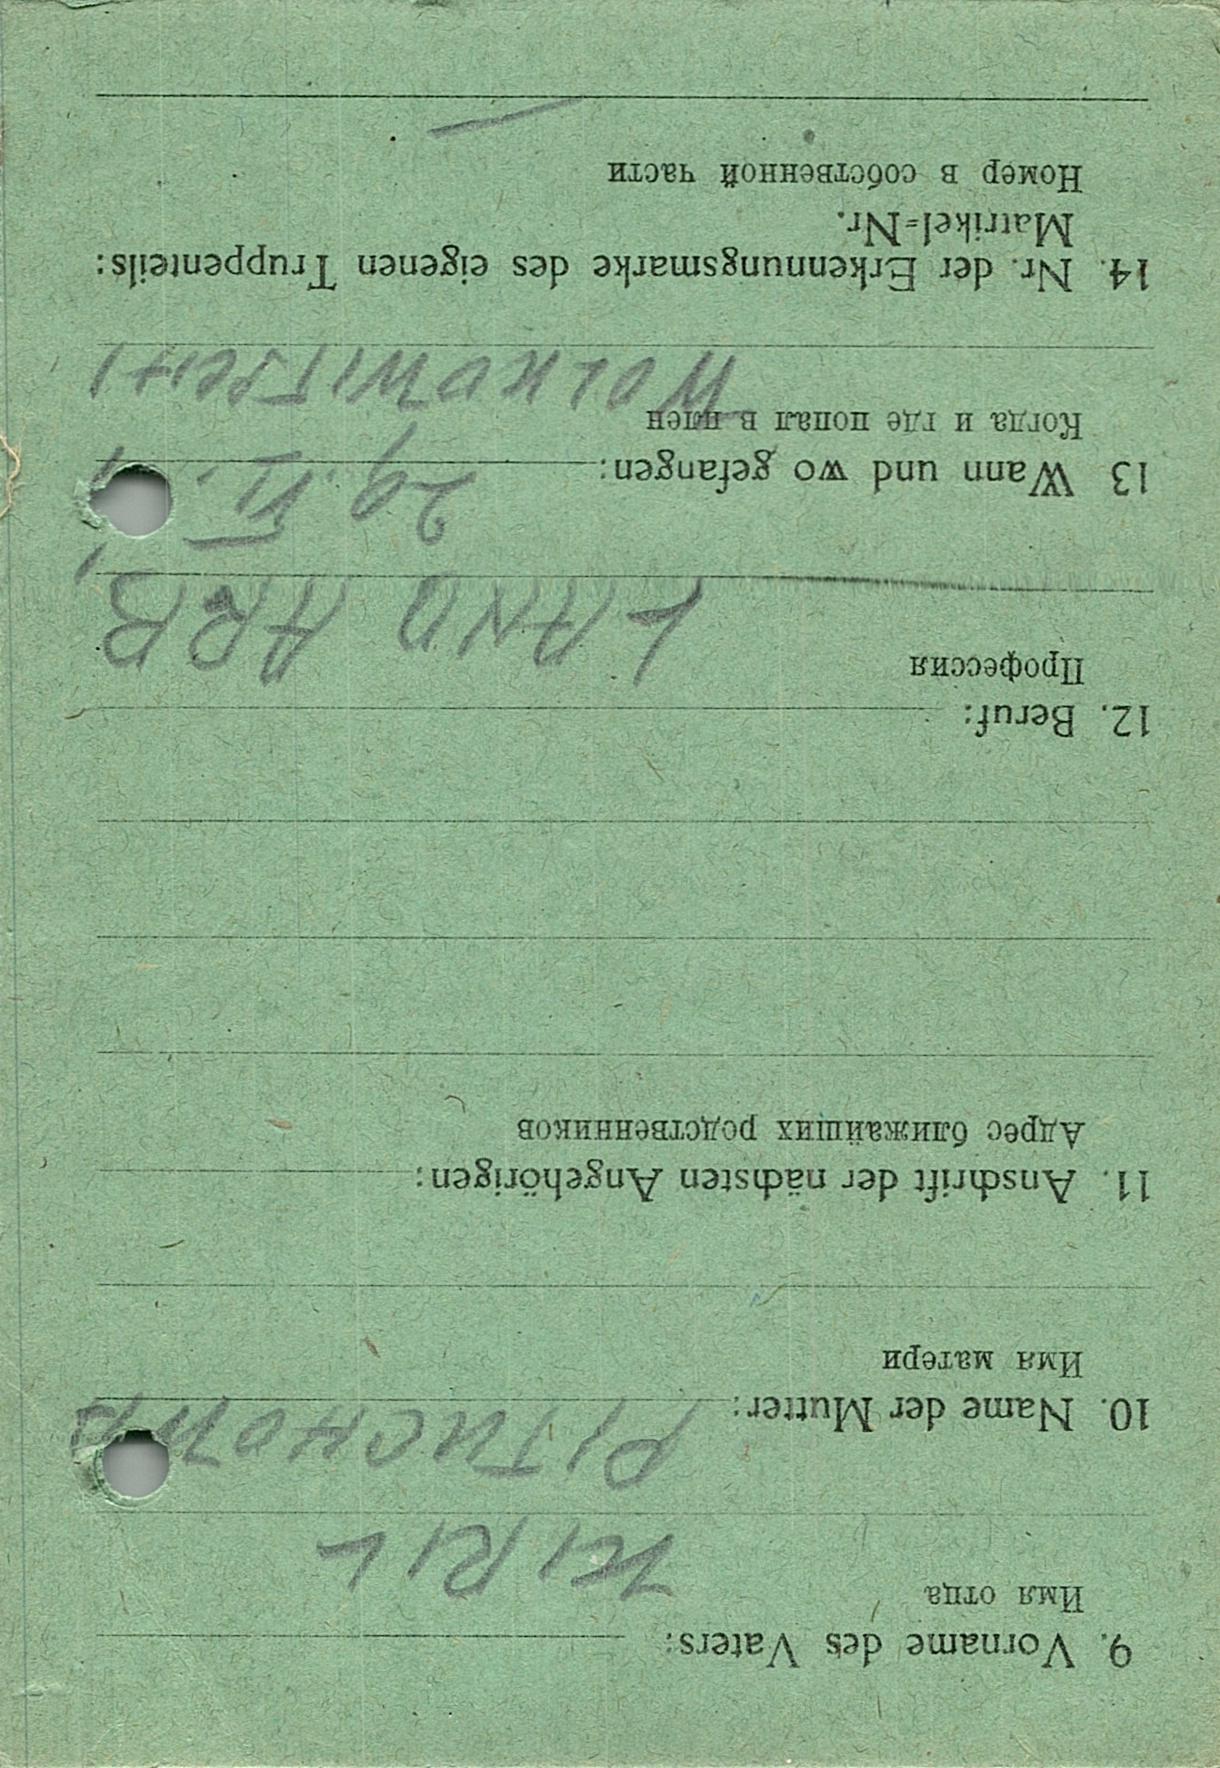 9. Vorname des Vaters:
Имя отца
KIRIL
10. Name der Mutter: PITUCHOWA
Имя матери
11. Anschrift der nächsten Angehörigen:
Адрес ближайших родственников
12. Beruf:
Профессия
LAND ARB,
13 Wann und wo gefangen: 29. VI.
Когда и где попал в плен
14. Nr. der Erkennungsmarke des eigenen Truppenteils:
Matrikel=Nr.
Номер в собственной части
—